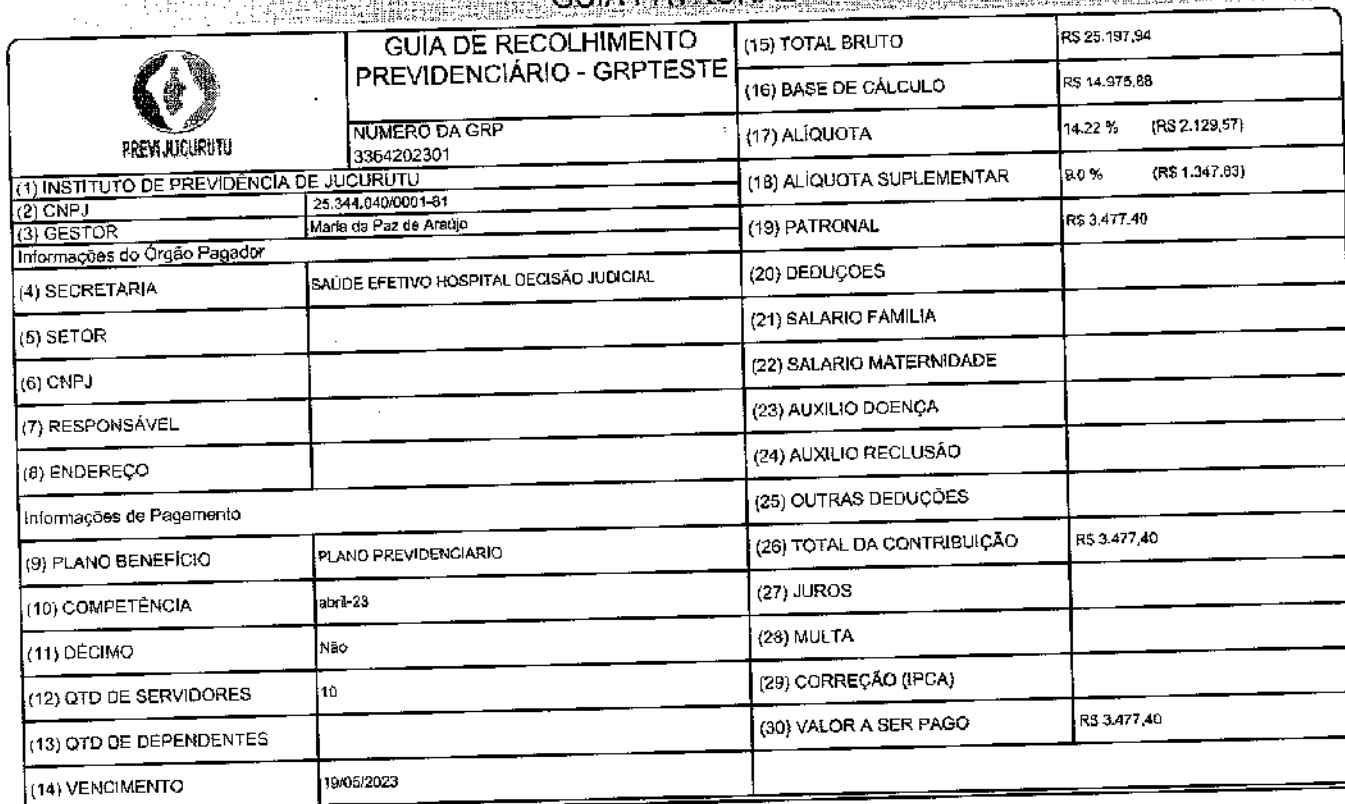 PREVI JUCURUTU
GUIA DE RECOLHIMENTO
PREVIDENCIÁRIO - GRPTESTE
NÚMERO DA GRP
3364202301
(1) INSTITUTO DE PREVIDÊNCIA DE JUCURUTU
(2) CNPJ 25.344.040/0001-81
(3) GESTOR Maria da Paz de Araújo
Informações do Órgão Pagador
(4) SECRETARIA SAÚDE EFETIVO HOSPITAL DECISÃO JUDICIAL
(5) SETOR
(6) CNPJ
(7) RESPONSÁVEL
(8) ENDEREÇO
Informações de Pagamento
(9) PLANO BENEFÍCIO PLANO PREVIDENCIARIO
(10) COMPETÊNCIA abril-23
(11) DÉCIMO Não
(12) QTD DE SERVIDORES 10
(13) QTD DE DEPENDENTES
(14) VENCIMENTO 19/05/2023
(15) TOTAL BRUTO R$ 25.197,94
(16) BASE DE CÁLCULO R$ 14.975,88
(17) ALÍQUOTA 14.22 % (R$ 2.129,57)
(18) ALÍQUOTA SUPLEMENTAR 9.0 % (R$ 1.347,83)
(19) PATRONAL R$ 3.477,40
(20) DEDUÇOES
(21) SALARIO FAMILIA
(22) SALARIO MATERNIDADE
(23) AUXILIO DOENÇA
(24) AUXILIO RECLUSÃO
(25) OUTRAS DEDUÇÕES
(26) TOTAL DA CONTRIBUIÇÃO R$ 3.477,40
(27) JUROS
(28) MULTA
(29) CORREÇÃO (IPCA)
(30) VALOR A SER PAGO R$ 3.477,40